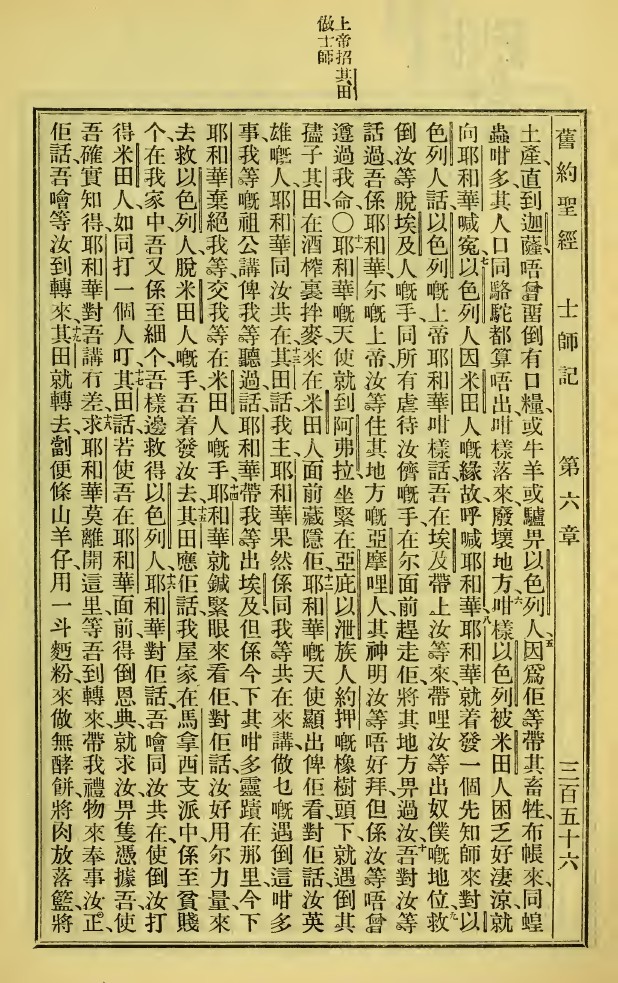 上帝招其田
做士師
舊約聖經 士師記 第六章 三百五十六
土產、直到迦薩、唔曾畱倒有口糧、或牛羊或驢畀以色列人、五因爲佢等帶其畜牲、布帳來、同蝗
蟲咁多、其人口同駱駝都算唔出、咁樣落來廢壞地方、六咁樣以色列被米田人困乏好淒涼、就
向耶和華喊冤、七以色列人因米田人嘅緣故、呼喊耶和華、八耶和華就着發一個先知師來對以
色列人話、以色列嘅上帝耶和華咁樣話、吾在埃及帶上汝等來、帶哩汝等出奴僕嘅地位、九救
倒汝等脫埃及人嘅手、同所有虐待汝儕嘅手、在尔面前趕走佢、將其地方畀過汝、十吾對汝等
話過、吾係耶和華、尔嘅上帝、汝等住其地方嘅亞摩哩人其神明、汝等唔好拜、但係汝等唔曾
遵過我命○十一耶和華嘅天使就到阿弗拉、坐緊在亞庇以泄族人約押嘅橡樹頭下、就遇倒其
孻子其田在酒榨裏拌麥、來在米田人面前藏隱佢、十二耶和華嘅天使顯出俾佢看、對佢話、汝英
雄嘅人、耶和華同汝共在、十三其田話、我主、耶和華果然係同我等共在、來講做乜嘅遇倒這咁多
事、我等嘅祖公講俾我等聽過話、耶和華帶我等出埃及、但係今下其咁多靈蹟在那里、今下
耶和華棄絕我等、交我等在米田人嘅手、十四耶和華就鍼緊眼來看佢、對佢話、汝好用尔力量來
去救以色列人脫米田人嘅手、吾着發汝去、十五其田應佢話、我屋家在馬拿西支派中、係至貧賤
个、在我家中吾又係至細个、吾樣邊救得以色列人、十六耶和華對佢話、吾噲同汝共在、使倒汝打
得米田人、如同打一個人叮、十七其田話、若使吾在耶和華面前得倒恩典、就求汝畀隻憑據、吾使
吾確實知得、耶和華對吾講冇差、十八求耶和華莫離開這里、等吾到轉來帶我禮物來奉事汝、正
佢話、吾噲等汝到轉來、十九其田就轉去、劏便條山羊仔、用一斗麪粉來做無酵餅、將肉放落籃、將